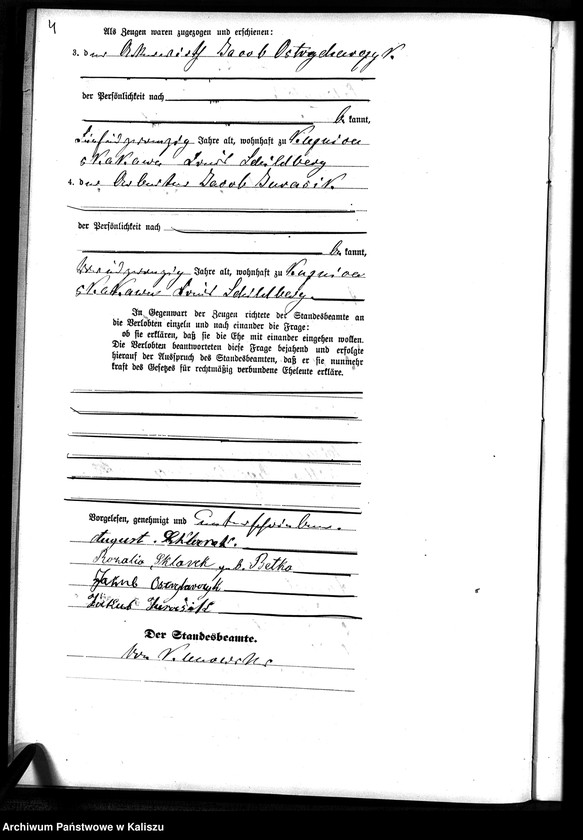 4
Als Zeugen waren zugezogen und erschienen:
3. der Ackerwirth Jacob
der Persönlichkeit nach
be kannt,
fünfundzwanzig Jahre alt, wohnhaft zu
Kreis Schildberg
4. der Arbeiter Jacob Jurasik
der Persönlichkeit nach
be kannt,
Jahre alt, wohnhaft zu
Kreis Schildberg.
In Gegenwart der Zeugen richtete der Standesbeamte an
die Verlobten einzeln und nach einander die Frage:
ob sie erklären, daß sie die Ehe mit einander eingehen wollen.
Die Verlobten beantworteten diese Frage bejahend und erfolgte
hierauf der Ausspruch des Standesbeamten, daß er sie nunmehr
kraft des Gesetzes für rechtmäßig verbundene Eheleute erkläre.
Vorgelesen, genehmigt und unterschrieben.
August
Rozalia Sklarek geb. Betka
Jakub
Jakub Jurasik
Der Standesbeamte.
von
Archiwum Państwowe w Kaliszu